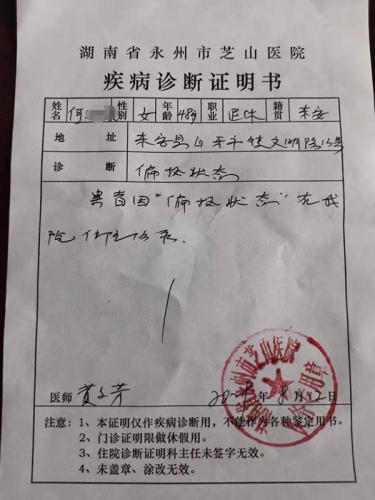 湖南省永州市芝山医院
疾病诊断证明书
姓名 何 性别 女 年龄 48岁 职业 退休 籍贯 东安
地址 东安县白牙市镇文明路
诊断 偏执状态
患者因“偏执状态”在我
院住
医师
年8月12日
湖南省永州市芝山医院
注意：1、本证明仅作疾病诊断用，不能作为各种鉴定用书。
2、门诊证明限做休假用。
3、住院诊断证明科主任未签字无效。
4、未盖章、涂改无效。